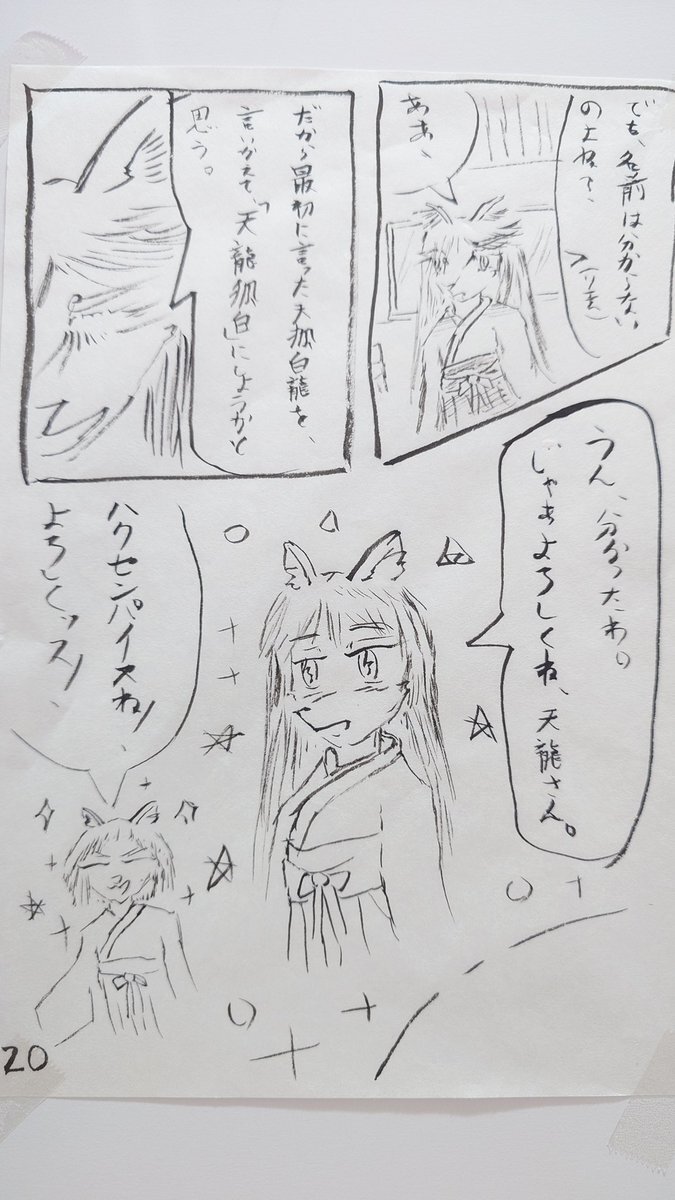 でも、名前は分からない
のよねぇ、
ああ、
だから最初に言った天狐白龍を、
言いかえて、「天龍狐白」にしようかと
思う。
うん、分かったわ。
じゃあよろしくね、天龍さん。
ハクセンパイスね!、
よろしくッス!、
20